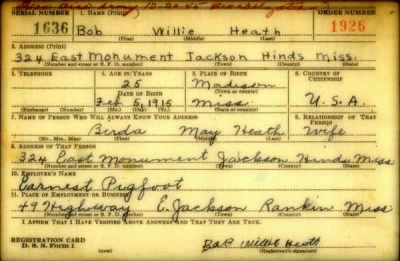 SERIAL NUMBER 1. NAME (Print) ORDER NUMBER
1636 Bob Willie Heath 1926
(First) (Middle) (Last)
2. ADDRESS (Print)
324 East Monument Jackson Hinds Miss.
(Number and street or R. F. D. number) (Town) (County) (State)
3. TELEPHONE 4. AGE IN YEARS 5. PLACE OF BIRTH 6. COUNTRY OF CITIZENSHIP
25 Madison
DATE OF BIRTH (Town or county)
Feb 5, 1915 Miss. U.S.A.
(Exchange) (Number) (Mo.) (Day) (Yr.) (State or country)
7. NAME OF PERSON WHO WILL ALWAYS KNOW YOUR ADDRESS 8. RELATIONSHIP OF THAT PERSON
Birda May Heath Wife
(Mr., Mrs., Miss) (First) (Middle) (Last)
9. ADDRESS OF THAT PERSON
324 East Monument Jackson Hinds Miss
(Number and street or R. F. D. number) (Town) (County) (State)
10. EMPLOYER'S NAME
Earnest Pigfoot
11. PLACE OF EMPLOYMENT OR BUSINESS
49 Highway E. Jackson Rankin Miss
(Number and street or R. F. D. number) (Town) (County) (State)
I AFFIRM THAT I HAVE VERIFIED ABOVE ANSWERS AND THAT THEY ARE TRUE.
REGISTRATION CARD
D. S. S. Form 1 Bob Willie Heath
(Registrant's signature)